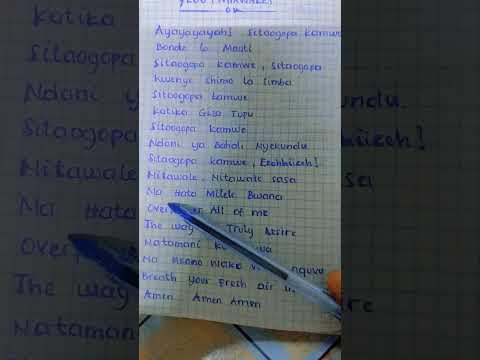 Ayayayayah! Sitaogopa Kamwe
Bonde la Mauti
Sitaogopa Kamwe, Sitaogopa
Kwenye Shimo la Simba
Sitaogopa Kamwe
Katika Giza Tupu
Sitaogopa Kamwe
Ndani ya Bahali Nyekundu
Sitaogopa Kamwe,
Nitawale, Nitawale sasa
Na Hata Milele Bwana
All of me
The way Truly Desire
Natamani
Na Mkono Wako
Breath your Fresh air
Amen Amen Amen